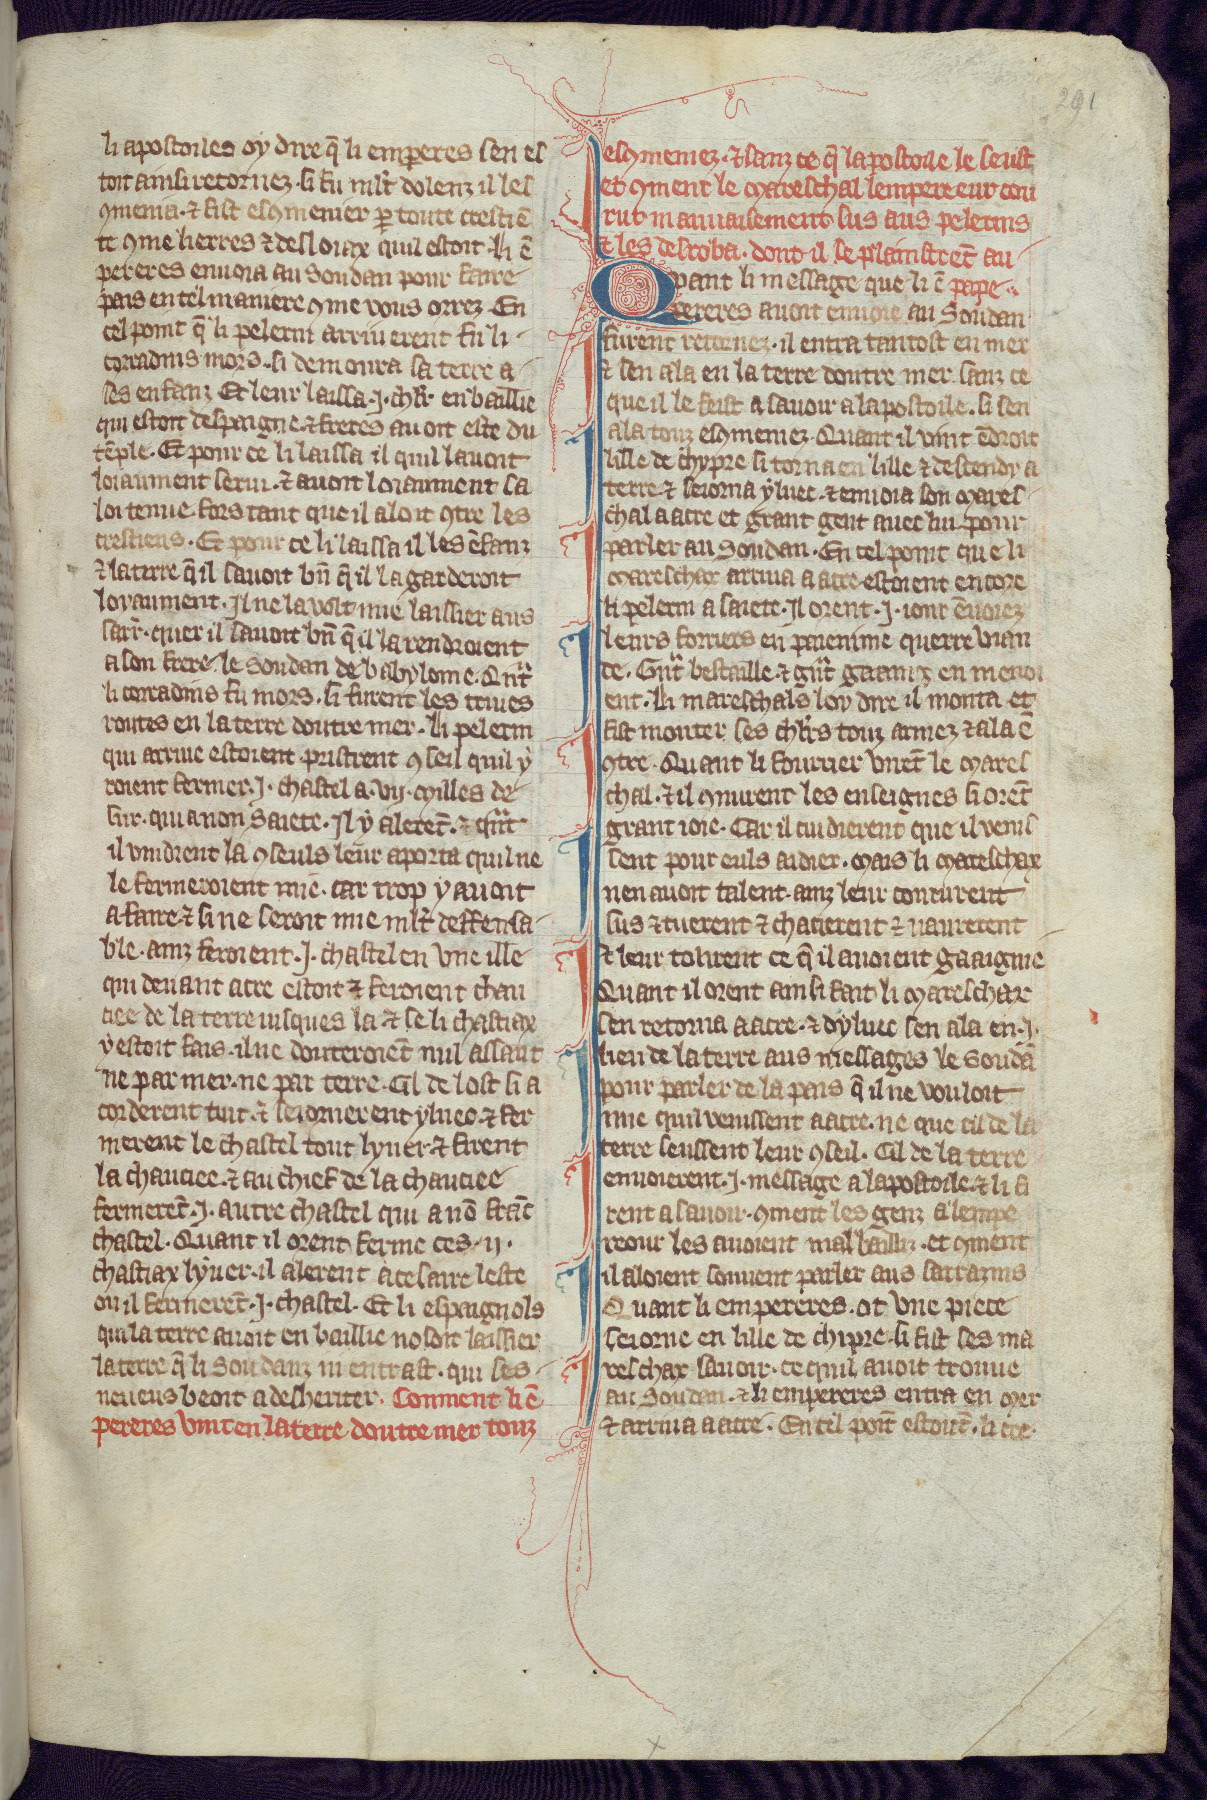 291
li apostoiles oy dire q̄ li emperes sen es
toit ainsi retornez. si fu ml't dolenz il les
9menia. ⁊ fist es9menier p̄ toute crestiē
te 9me lierres ⁊ desloiax quil estoit. li ē
pereres enuoia au Soudan pour faire
pais en tel maniere 9me vous orrez. En
cel point q̄ li pelerin arriuerent fu li
corradins mors. si demoura sa terre a
ses enfanz. Et leur laissa .j. ch'lr en baillie
qui estoit despaigne. ⁊ freres auoit este du
tēple. Et pour ce li laissa il quil lauoit
loiaument serui. ⁊ auoit loiaument sa
loi tenue. fors tant que il aloit 9tre les
crestiens. Et pour ce li laissa il les ēfanz
⁊ la terre q̄ il sauoit bn̄ q̄ il la garderoit
loyaument. Il ne la volt mie laissier aus
sarr̄. quer il sauoit bn̄ q̄ il la rendroient
a son frere le soudan de babyloine. Qn̄t
li corradins fu mors. si furent les triues
routes en la terre doutre mer. li pelerin
qui arriue estoient pristrent 9seil quil y
roient fermer .j. chastel a .vij. milles de
sur. qui a non Saiete. Il y alerēt. ⁊ qn̄t
il vindrent la 9seuls leur aporta quil ne
le fermeroient mie. car trop y auoit
a faire ⁊ si ne seroit mie ml't deffensa
ble. ainz feroient .j. chastel en vne ille
qui deuant acre estoit ⁊ feroient chau
ciee de la terre iusques la ⁊ se li chastiax
y estoit fais. il ne douteroiēt nul assaut
ne par mer. ne par terre. Cil de lost si a
corderent tuit. ⁊ seiornerent yluec. ⁊ fer
merent le chastel tout lyuer. ⁊ firent
la chauciee. ⁊ au chief de la chauciee
fermerēt .j. autre chastel qui a nō frāc
chastel. Quant il orent ferme ces .ij.
chastiax lyuer. il alerent a cesaire leste
ou il fermerēt .j. chastel. Et li espaignols
qui la terre auoit en baillie no soit laissier
la terre q̄ li Soudanz ni entrast. qui ses
neueus beoit a desheriter. Comment li ē
pereres vint en la terre doutre mer touz
es9meniez. ⁊ sanz ce q̄ lapostoile le seust
et 9ment le mareschal lempereeur cou
rut mauuaisement sus aus pelerins
⁊ les desroba. dont il se plainstrēt au
Qvant li message que li ē pape.
pereres auoit enuoie au Soudan
furent retornez. il entra tantost en mer
⁊ sen ala en la terre doutre mer. sanz ce
que il le feist a sauoir a lapostoile. si sen
ala touz es9meniez. Quant il vint ēdroit
lille de chypre si torna en lille ⁊ descendy a
terre ⁊ seiorna yluec. ⁊ enuoia son mares
chal a acre et grant gent auec lui pour
parler au Soudan. En tel point que li
mareschax arriua a acre estoient encore
li pelerin a saiete. Il orent .j. iour ēuoiez
leurs forriers en paienime querre vian
de. Gn̄t bestaille. ⁊ gn̄t gaainz en menoi
ent. Li mareschals loy dire il monta et
fist monter ses ch'lrs touz armez ⁊ ala ē
9tre. Quant li fourrier virēt le mares
chal. ⁊ il 9nurent les enseignes si orēt
grant ioie. Car il cuidierent que il venis
sent pour euls aidier. mais li mareschax
nen auoit talent. ainz leur coururent
sus ⁊ tuerent ⁊ chacierent ⁊ naurerent
⁊ leur tolirent ce q̄ il auoient gaaignie
Quant il orent ainsi fait li mareschax
sen retorna a acre. ⁊ dyluec sen ala en .j.
lieu de la terre aus messages le soudā
pour parler de la pais q̄ il ne vouloit
mie quil venissent a acre. ne que cil de la
terre seussent leur 9seil. Cil de la terre
enuoierent .j. message a lapostoile. ⁊ li fi
rent a sauoir. 9ment les genz a lempe
reour les auoient mal bailliz. et 9ment
il aloient souuent parler aus sarrazins
Quant li empereres. ot vne piece
seiorne en lille de chipre. si fist ses ma
reschax sauoir. ce quil auoit trouue
au Soudan. ⁊ li empereres entra en mer
⁊ arriua a acre. En cel poīt estoiēt. li cre